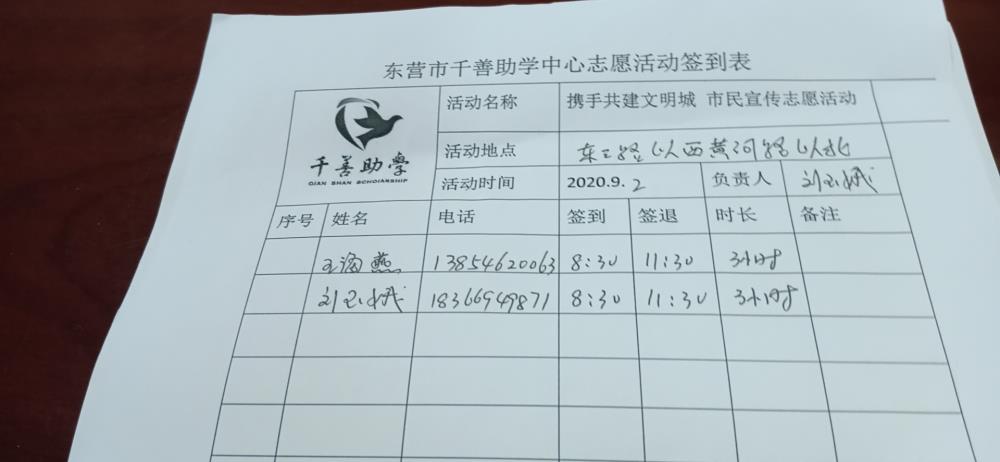 东营市千善助学中心志愿活动签到表
千善助学
QIAN SHAN SCHOIARSHIP
活动名称 携手共建文明城 市民宣传志愿活动
活动地点 东二路以西黄河路以北
活动时间 2020.9.2 负责人 刘玉娥
序号 姓名 电话 签到 签退 时长 备注
王海燕 13854620063 8:30 11:30 3小时
刘玉娥 18366949871 8:30 11:30 3小时